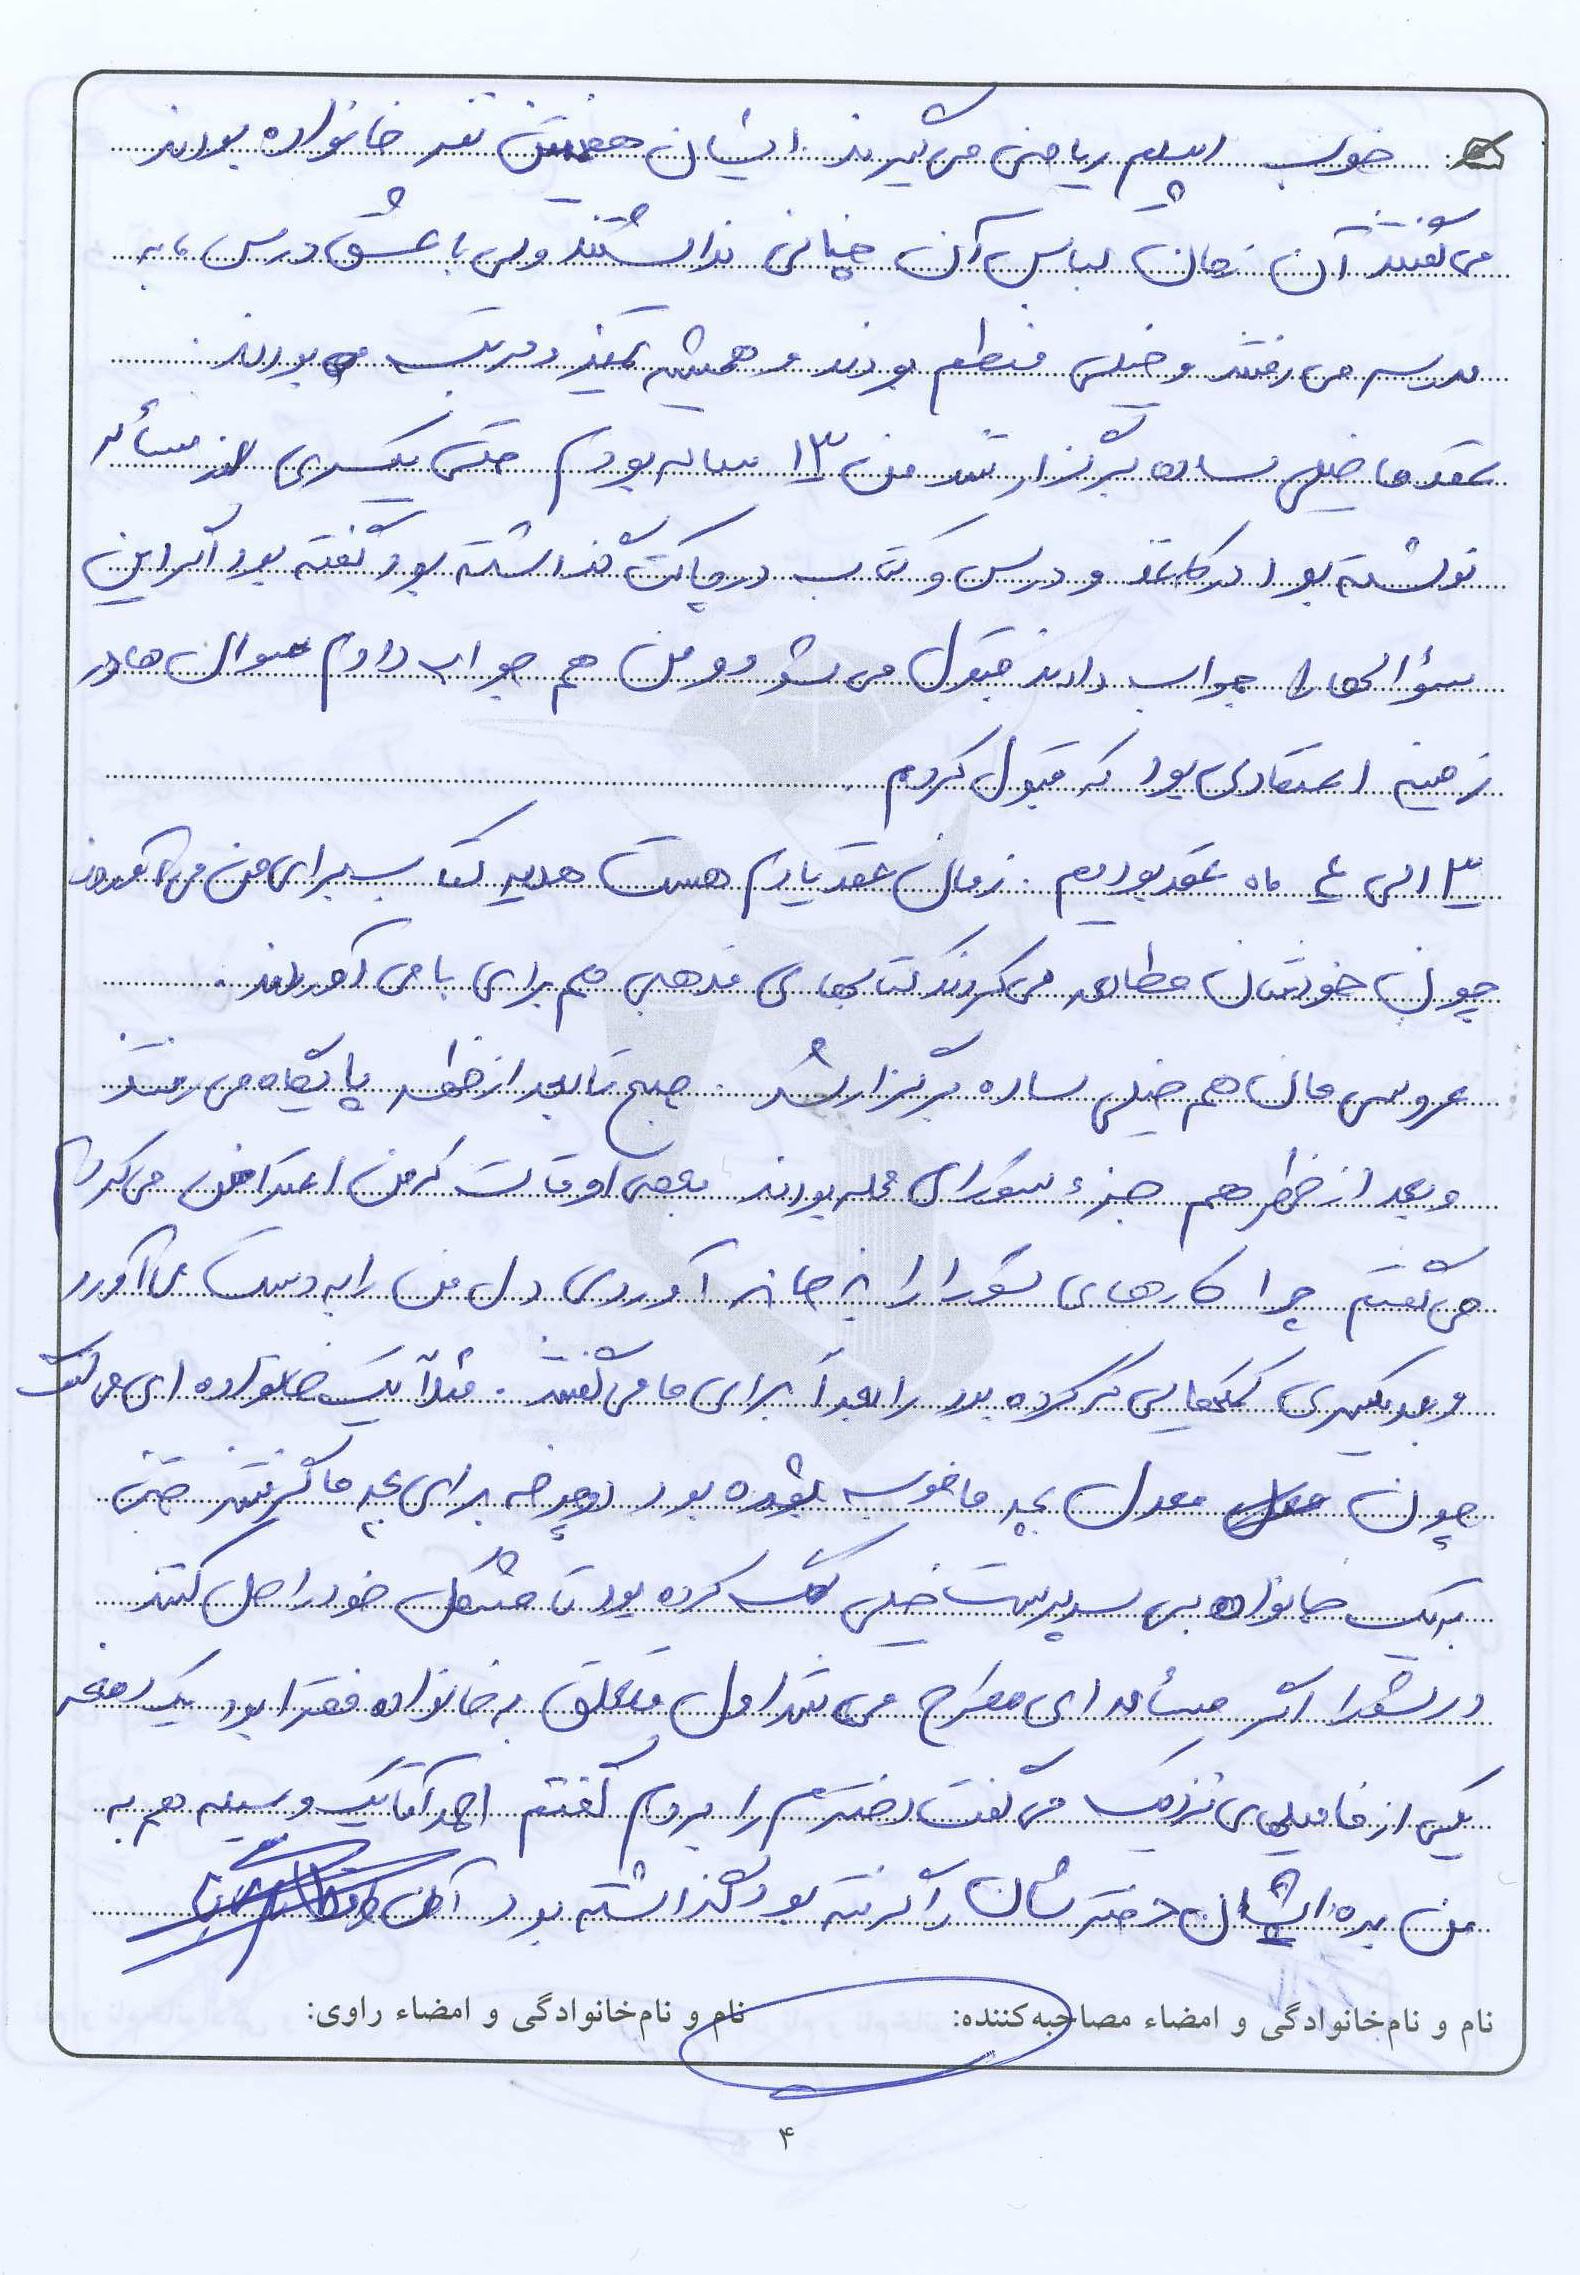 خوب دیپلم ریاضی می گیرند. ایشان هفتمین نفر خانواده بودند
می گفتند آن زمان لباس آن چنانی نداشتند ولی با عشق درس ما به
مدرسه می رفتند و خیلی منظم بودند و همیشه تمیز و مرتب بودند.
عقد ما خیلی ساده برگزار شد من ۱۳ ساله بودم حتی یکسری از مسأله
نوشته بود در کاغذ و درس و کتاب در پاکت گذاشته بود گفته بود اگر این
سؤالها را جواب دادند قبول می شود و من هم جواب دادم سوال ها در
زمینه اعتقادی بود که قبول کردم.
۳ الی ۴ ماه عقد بودیم. زمان عقد یادم هست هدیه کتاب برای من می آوردند
چون خودشان مطالعه می کردند کتابهای مذهبی هم برای ما می آوردند.
عروسی مان هم خیلی ساده برگزار شد. صبح تا بعد از ظهر پایگاه می رفتند
و بعد از ظهر هم جزء شورای محله بودند بعضی اوقات که من اعتراض می کردم
می گفتم چرا کارهای شورا را به خانه آوردی دل من را به دست می آورد
و بعد یکسری کمکهایی که کرده بود را بعداً برای ما می گفتند. مثلاً یک خانواده ای می گفت
چون معدل بچه ما خوب شده بود دوچرخه برای بچه ما گرفتند حتی
به یک خانواده بی سرپرست خیلی کمک کرده بود تا مشکل خود را حل کنند
در شورا اگر مسأله ای مطرح می شد اول متعلق به خانواده فقرا بود یک دفعه
یکی از فامیلهای نزدیک می گفت دخترم را بردم گفتم احمد آقا یک وسیله هم به
من بده ایشان دخترشان را گرفته بود گذاشته بود آن
نام و نام‌خانوادگی و امضاء مصاحبه‌کننده: نام و نام‌خانوادگی و امضاء راوی:
۴